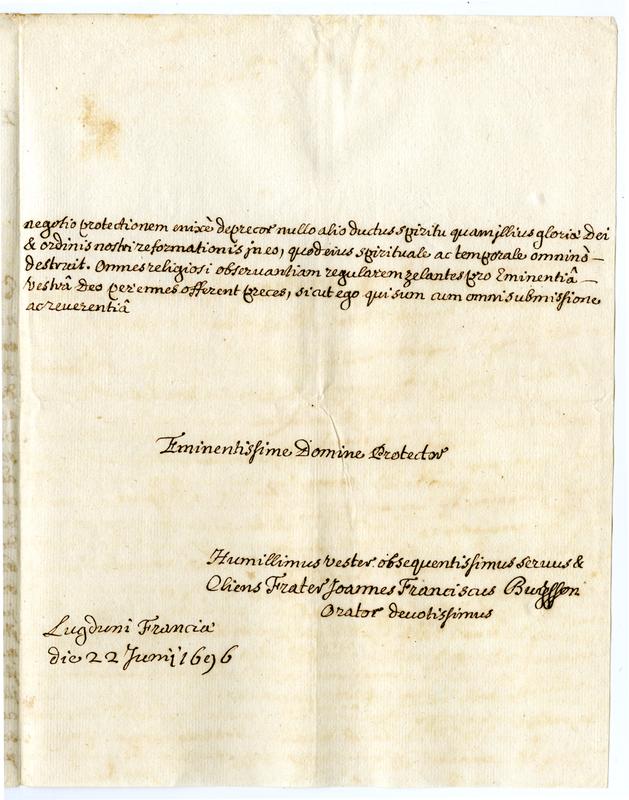 negotio protectionem enixè deprecor nullo alio ductus spiritu quam illius gloriæ Dei
& ordinis nostri reformationis in eo, quod eius spirituale ac temporale omninò
destruit. Omnes religiosi obseruantiam regularem zelantes pro Eminentiâ
Vestrâ deo perennes offerent preces, sicut ego qui sum cum omni submissione
ac reuerentiâ
Eminentissime Domine Protector
Humillimus vester obsequentissimus seruus &
Cliens Frater Joannes Franciscus
Orator deuotissimus
Lugduni Franciæ
die 22 Junij 1696